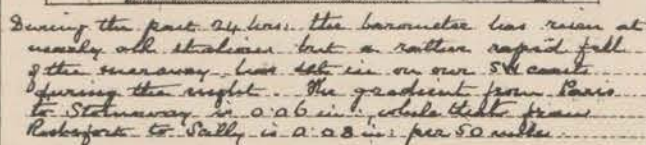 During the past 24 hrs. the barometer has risen at
nearly all stations but a rather rapid fall
of the mercury has set in on our SW coasts
during the night. The gradient from Paris
to Stornoway is 0.06 in., while that from
Rochefort to Scilly is 0.08 in. per 50 miles